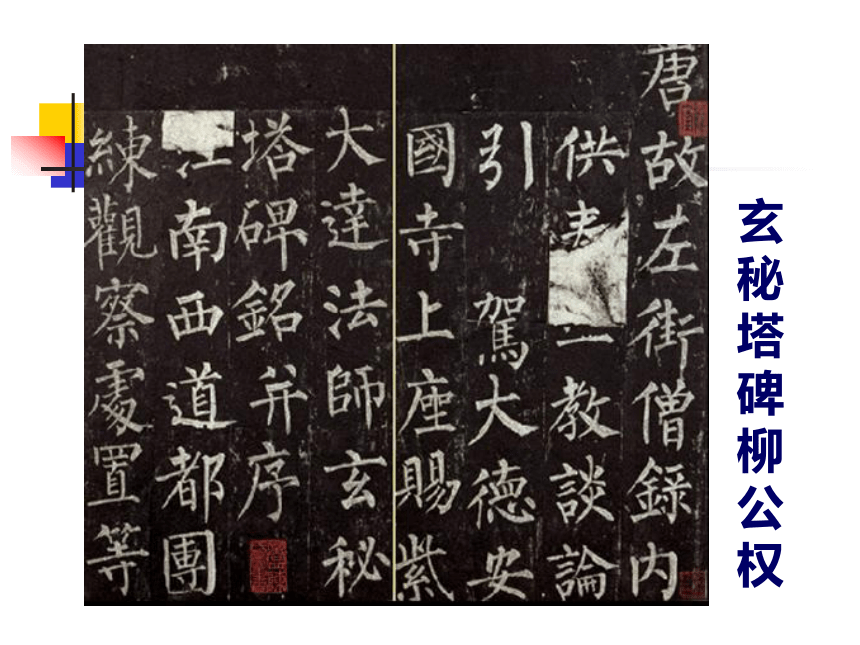 玄秘塔碑柳公权
唐故左街僧錄內
供教談論
引駕大德安
國寺上座賜紫
大達法師玄秘
塔碑銘并序
江南西道都團
練觀察處置等